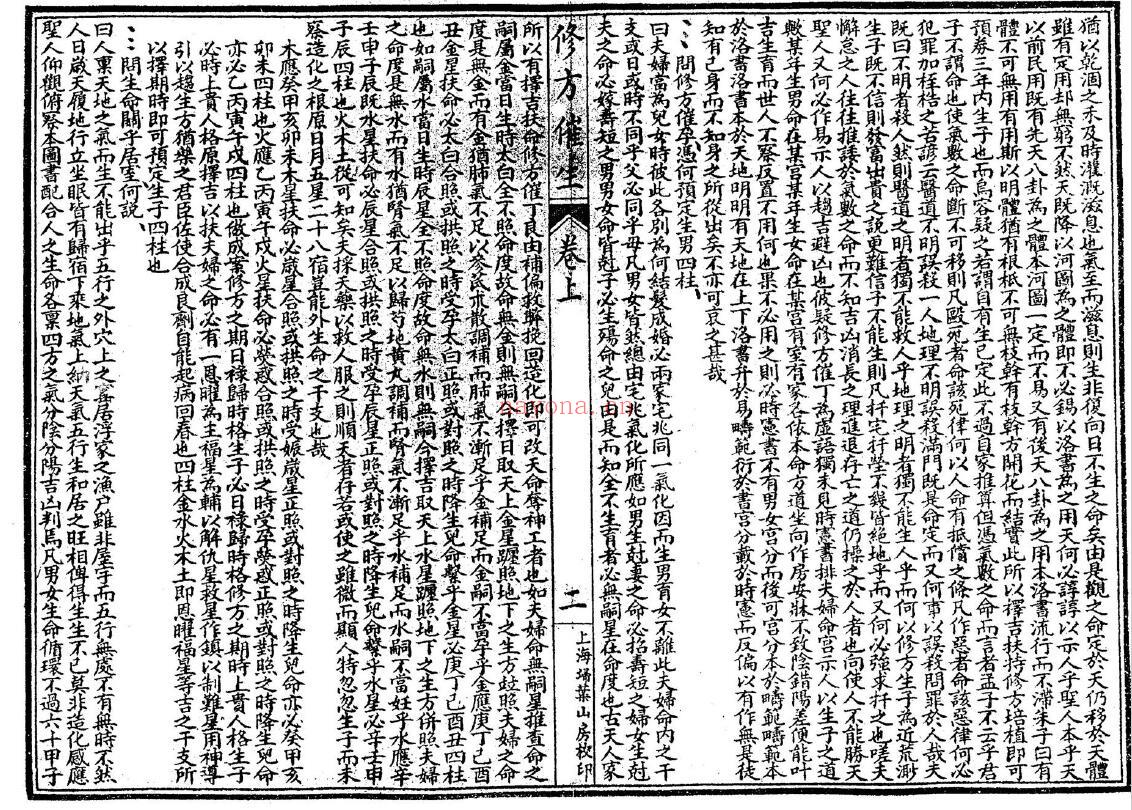 猶以乾涸之木及時灌溉滋息也氣至而滋息則生非復向日不生之命矣由是觀之命定於天仍移於天體
雖有定用却無窮不然天既降以河圖為之體即不必錫以洛書為之用天何必諄諄以示人乎聖人本乎天
以前民用既有先天八卦為之體本河圖一定而不易又有後天八卦為之用本洛書流行而不滯朱子曰有
體不可無用有用斯以明體猶有根柢不可無枝幹有枝幹方開花而結實此所以擇吉扶持修方培植即可
預券三年內生子也而烏容疑之若謂自有生已定此不過自家推算但憑氣數之命而言者孟子不云乎君
子不謂命也使氣數之命斷不可移則凡毆死者命該死律何以人命有抵償之條凡作惡者命該惡律何必
犯罪加桎梏之苦諺云醫道不明誤殺一人地理不明誤殺滿門既是命定而又何事以誤殺問罪於人哉夫
既曰不明者殺人然則醫道之明者獨不能救人乎地理之明者獨不能生人乎而何以修方生子為近荒渺
生子既不信則發富出貴之說更難信子不能生則凡扦宅扦塋不幾皆絕地乎而又何必強求扦之也嗟夫
懈怠之人往往推諉於氣數之命而不知吉凶消長之理進退存亡之道仍操之於人者也向使人不能勝天
聖人又何必作易示人以趨吉避凶也彼疑修方催丁為虛語獨未見時憲書排夫婦命宮示人以生子之道
歟某年生男命在某宮某年生女命在某宮有室有家各依本命方道坐向作房安牀不致陰錯陽差便能叶
吉生育而世人不察反置不用何也果不必用之則必時憲書不有男女宮分而後可宮分本於疇範疇範本
於洛書洛書本於天地明明有天地在上下洛書弁於易疇範衍於書宮分載於時憲而反偏以有作無是徒
知有己身而不知身之所從出矣不亦可哀之甚哉
問修方催孕憑何預定生男四柱
曰夫婦當為兒女時彼此各別為何結髮成婚必兩家宅兆同一氣化因而生男育女不離此夫婦命內之干
支或日或時不同乎父必同乎母凡男女皆然總由宅兆氣化所應如男生尅妻之命必招壽短之婦女生尅
夫之命必嫁壽短之男男女命皆尅子必生殤命之兒由是而知全不生育者必無嗣星在命度也古天人家
修方催生 卷上 二 上海埽葉山房校印
所以有擇吉扶命修方催丁良由補偏救解挽回造化即可改天命奪神工者也如夫婦命無嗣星推查命之
嗣屬金當日生時太白全不照命度故命無金則無嗣今擇日取天上金星躔照地下之生方尅照夫婦之命
度是無金而有金猶肺氣不足以參芪朮散調補而肺氣不漸足乎金補足而金嗣不當孕乎金應庚丁己酉
丑金星扶命必太白合照或拱照之時受孕太白正照或對照之時降生兒命繫乎金星必庚丁己酉丑四柱
也如嗣屬水當日生時辰星全不照命度故命無水則無嗣今擇吉取天上水星躔照地下之生方併照夫婦
之命度是無水而有水猶腎氣不足以歸芍地黃丸調補而腎氣不漸足乎水補足而水嗣不當妊乎水應辛
壬申子辰既水星扶命必辰星合照或拱照之時受孕辰星正照或對照之時降生兒命繫乎水星必辛壬申
子辰四柱也火木土從可知矣夫採天藥以救人服之則順天者存若或使之雖微而顯人特忽忽生子而未
察造化之根原日月五星二十八宿豈能外生命之干支也哉
木應癸甲亥卯未木星扶命必歲星合照或拱照之時受娠歲星正照或對照之時降生兒命亦必癸甲亥
卯未四柱也火應乙丙寅午戌火星扶命必熒惑合照或拱照之時受孕熒惑正照或對照之時降生兒命
亦必乙丙寅午戌四柱也倣成案修方之期日祿歸時格生子必日祿歸時格修方之期時上貴人格生子
必時上貴人格原擇吉以扶夫婦之命必有一恩曜為主福星為輔以解仇星救星作鎮以制難星用神導
引以趨生方猶藥之君臣佐使合成良劑自能起病回春也四柱金水火木土即恩曜福星等吉之干支所
以擇期時即可預定生子四柱也
問生命關乎居室何說
曰人稟天地之氣而生不能出乎五行之外穴上之喬居浮家之漁戶雖非屋宇而五行無處不有無時不然
人日戴天履地行立坐眠皆有歸宿下乘地氣上納天氣五行生和居之旺相俾得生生不已莫非造化感應
聖人仰觀俯察本圖書配合人之生命各稟四方之氣分陰分陽吉凶判焉凡男女生命循環不過六十甲子